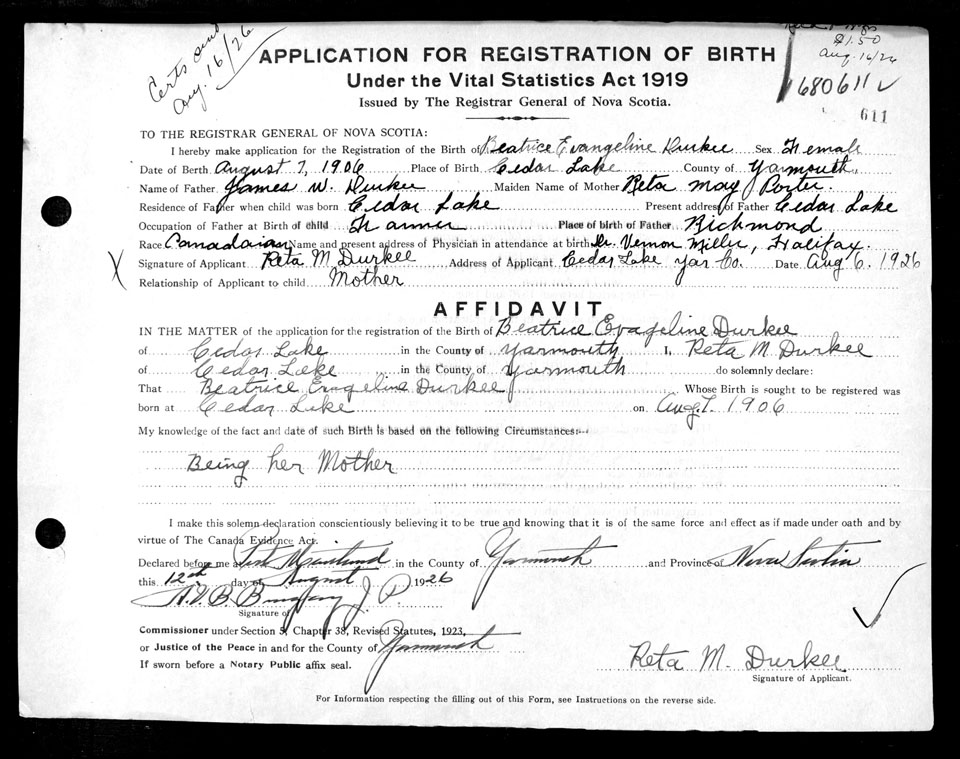 Certs sent
Aug. 16/26
$1.50
Aug. 16/26
680611
611
APPLICATION FOR REGISTRATION OF BIRTH
Under the Vital Statistics Act 1919
Issued by The Registrar General of Nova Scotia.
TO THE REGISTRAR GENERAL OF NOVA SCOTIA:
I hereby make application for the Registration of the Birth of Beatrice Evangeline Durkee Sex Female
Date of Birth August 7, 1906 Place of Birth Cedar Lake County of Yarmouth
Name of Father James W. Durkee Maiden Name of Mother Reta May Porter.
Residence of Father when child was born Cedar Lake Present address of Father Cedar Lake
Occupation of Father at Birth of child Farmer Place of birth of Father Richmond
Race Canadaian Name and present address of Physician in attendance at birth Dr. Vernon Miller, Halifax.
X Signature of Applicant Reta M Durkee Address of Applicant Cedar Lake Yar Co. Date Aug 6. 1926
Relationship of Applicant to child Mother
AFFIDAVIT
IN THE MATTER of the application for the registration of the Birth of Beatrice Evageline Durkee
of Cedar Lake in the County of Yarmouth I, Reta M. Durkee
of Cedar Lake in the County of Yarmouth do solemnly declare:
That Beatrice Evageline Durkee Whose Birth is sought to be registered was
born at Cedar Lake on Aug 7. 1906
My knowledge of the fact and date of such Birth is based on the following Circumstances:-
Being her Mother
I make this solemn declaration conscientiously believing it to be true and knowing that it is of the same force and effect as if made under oath and by
virtue of The Canada Evidence Act.
Declared before me at Port Maitland in the County of Yarmouth and Province of Nova Scotia
this 12th day of August 1926
J. P.
Signature of
Commissioner under Section 5, Chapter 38, Revised Statutes, 1923,
or Justice of the Peace in and for the County of Yarmouth
If sworn before a Notary Public affix seal.
Reta M. Durkee
Signature of Applicant.
For Information respecting the filling out of this Form, see Instructions on the reverse side.